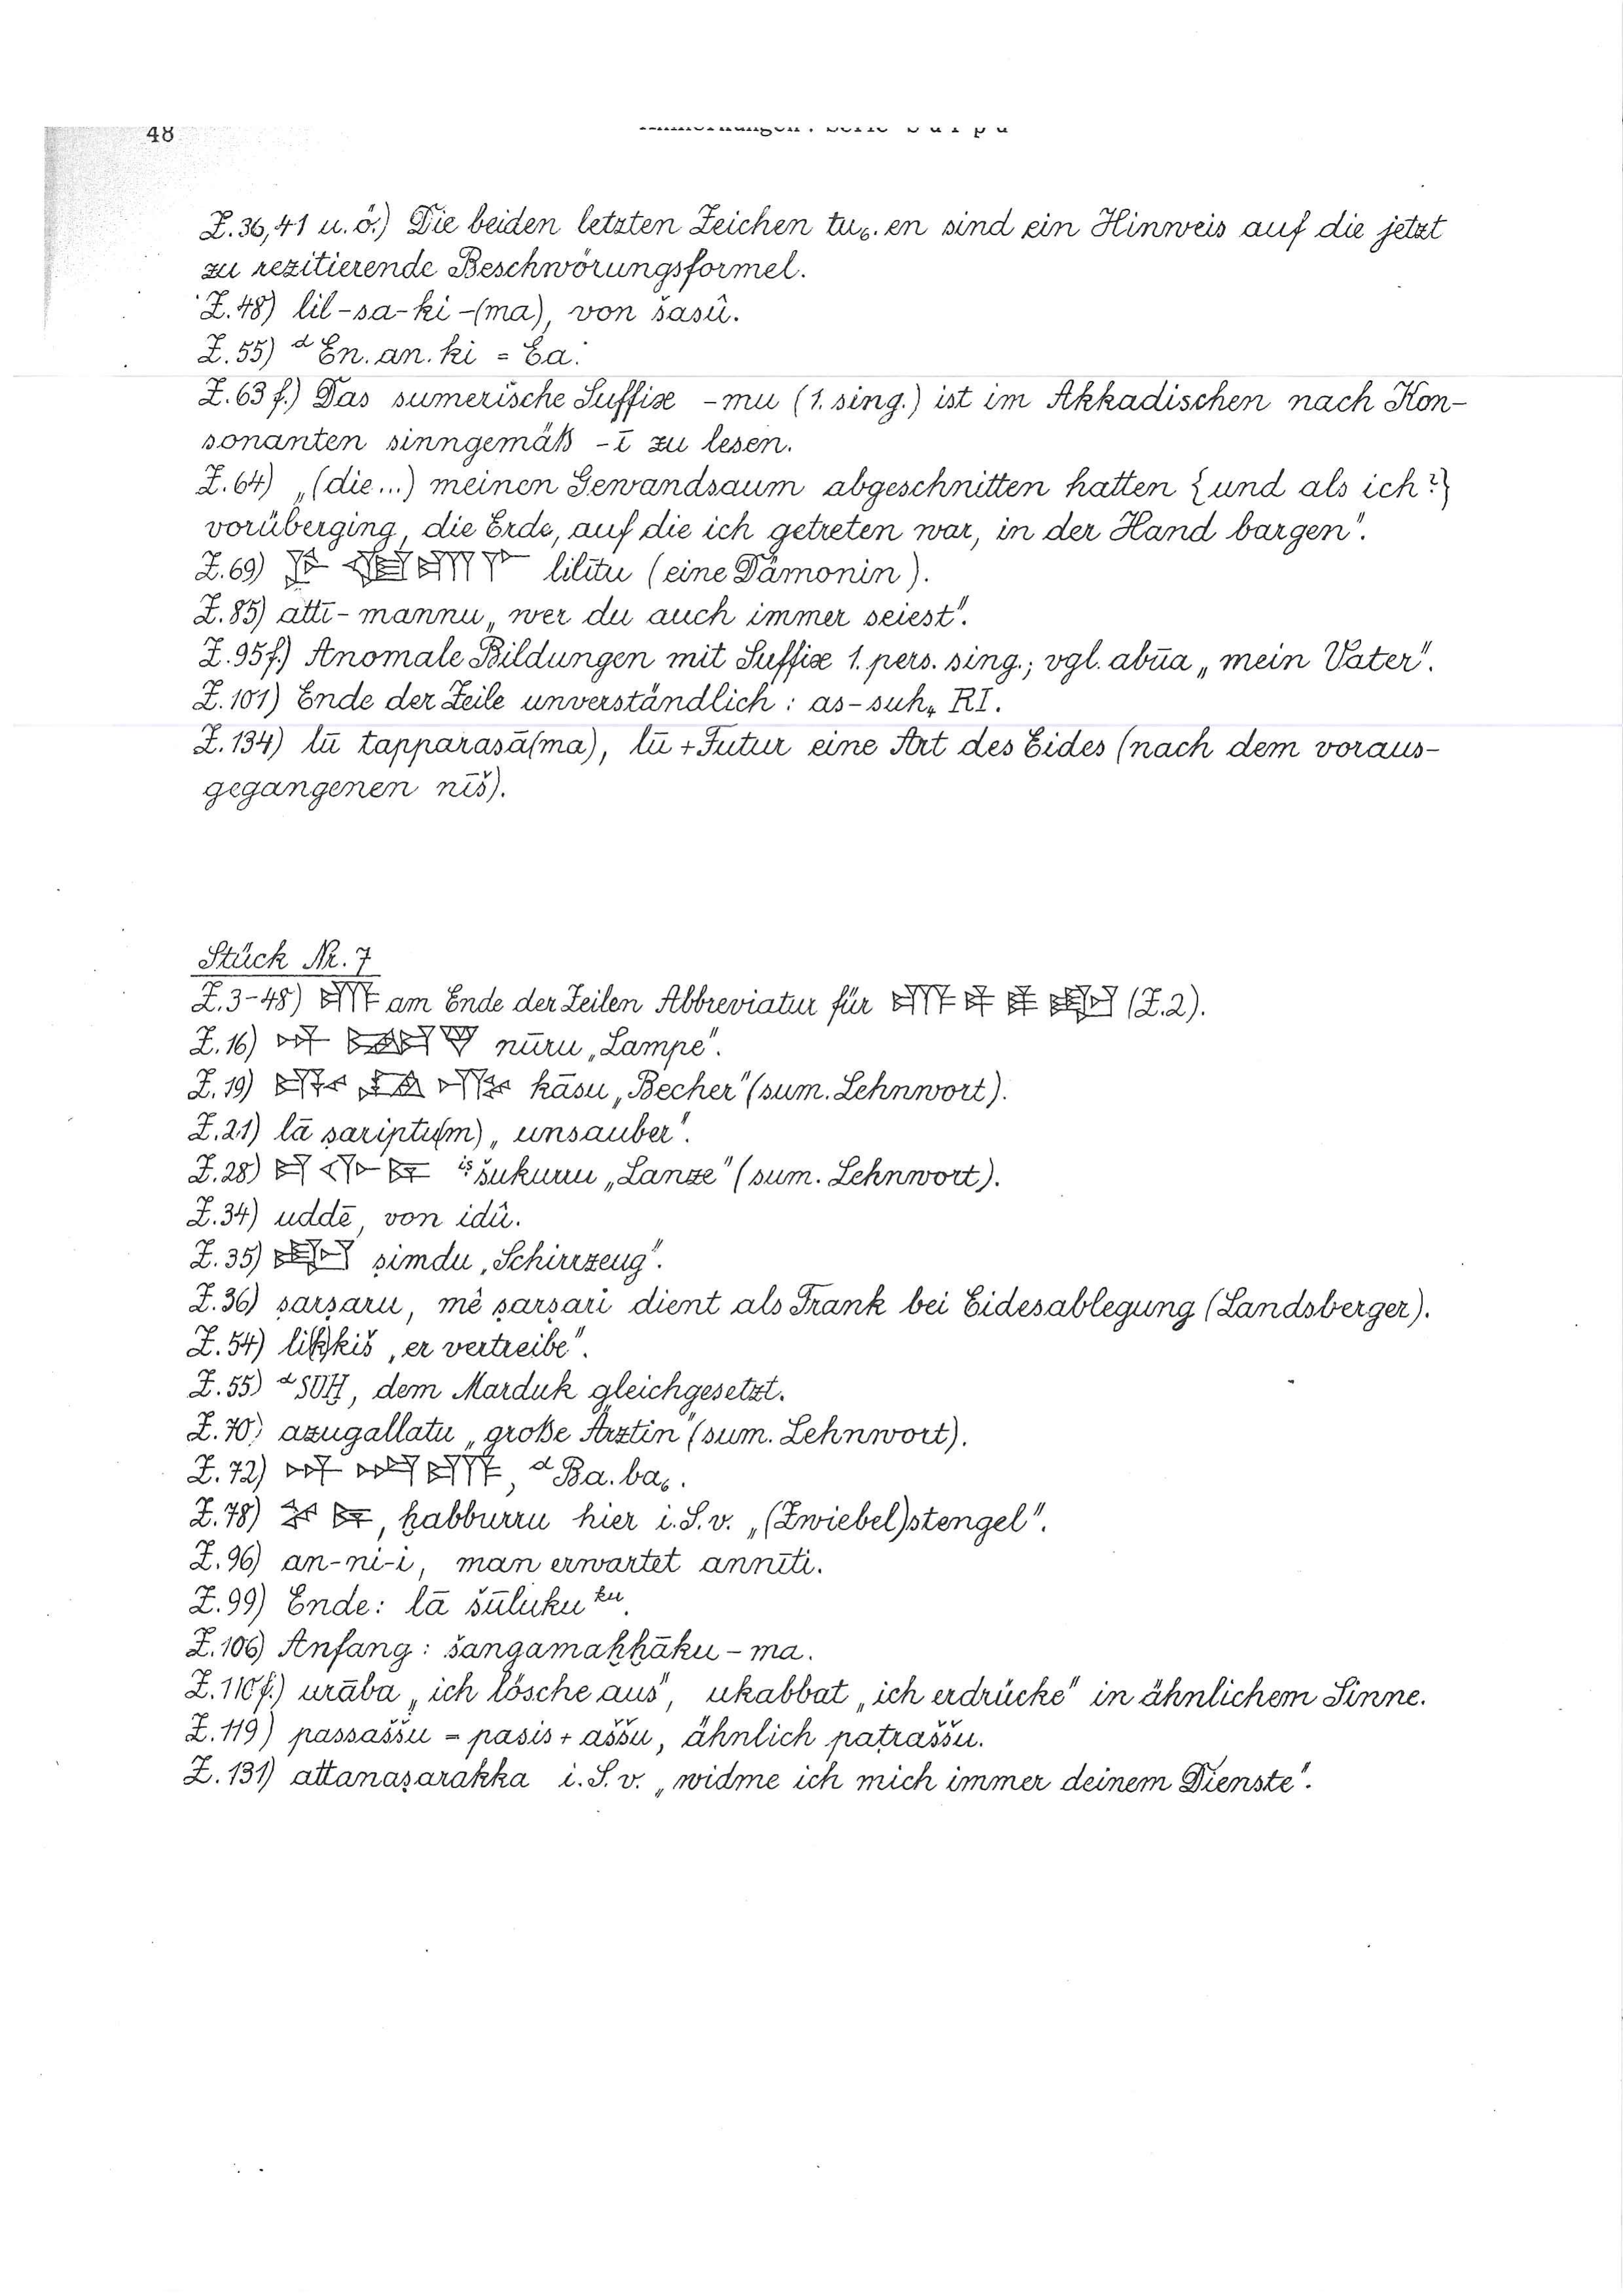 48
Z.36,41 u. ö.) Die beiden letzten Zeichen tu₆.en sind ein Hinweis auf die jetzt
zu rezitierende Beschwörungsformel.
Z.48) lil-sa-ki-(ma), von šasû.
Z.55) ᵈEn.an.ki = Ea.
Z.63 f.) Das sumerische Suffix -mu (1. sing.) ist im Akkadischen nach Kon-
sonanten sinngemäß -ī zu lesen.
Z.64) „(die...) meinen Gewandsaum abgeschnitten hatten {und als ich?}
vorüberging, die Erde, auf die ich getreten war, in der Hand bargen".
Z.69) lilītu (eine Dämonin).
Z.85) attī-mannu „wer du auch immer seiest".
Z.95f.) Anomale Bildungen mit Suffix 1. pers. sing.; vgl. abūa „mein Vater".
Z.101) Ende der Zeile unverständlich: as-suh₄ RI.
Z.134) lū tapparasā(ma), lū + Futur eine Art des Eides (nach dem voraus-
gegangenen nīš).
Stück Nr. 7
Z.3-48) am Ende der Zeilen Abbreviatur für (Z.2).
Z.16) nūru „Lampe".
Z.19) kāsu „Becher" (sum. Lehnwort).
Z.21) lā ṣariptu(m) „unsauber".
Z.28) ⁱṣšukurru „Lanze" (sum. Lehnwort).
Z.34) uddē, von idû.
Z.35) ṣimdu „Schirrzeug".
Z.36) ṣarṣaru, mê ṣarṣari dient als Trank bei Eidesablegung (Landsberger).
Z.54) li(k)kiš „er vertreibe".
Z.55) ᵈSUḪ, dem Marduk gleichgesetzt.
Z.70) azugallatu „große Ärztin" (sum. Lehnwort).
Z.72) , ᵈBa.ba₆.
Z.78) , ḫabburru hier i.S.v. „(Zwiebel)stengel".
Z.96) an-ni-i, man erwartet annīti.
Z.99) Ende: lā šūluku ᵏᵘ.
Z.106) Anfang: šangamaḫḫāku-ma.
Z.110f.) urāba „ich lösche aus", ukabbat „ich erdrücke" in ähnlichem Sinne.
Z.119) passaššu = pasis + aššu, ähnlich paṭraššu.
Z.131) attanaṣarakka i.S.v. „widme ich mich immer deinem Dienste".